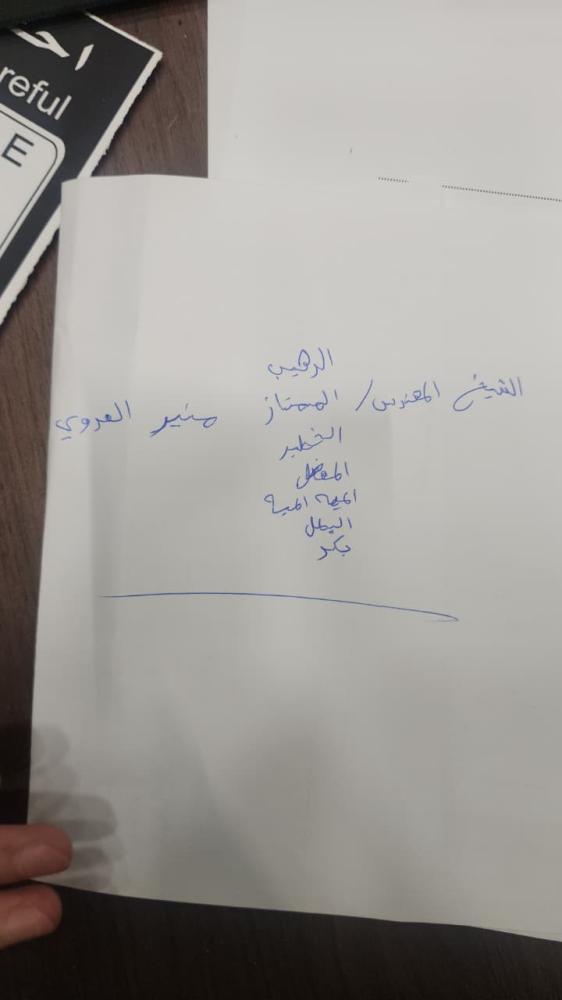 احـ
reful
E
الرهيب
الشيخ المهندس/ الممتاز منير العروي
الخطير
المفضل
الميه الميه
البطل
بكر